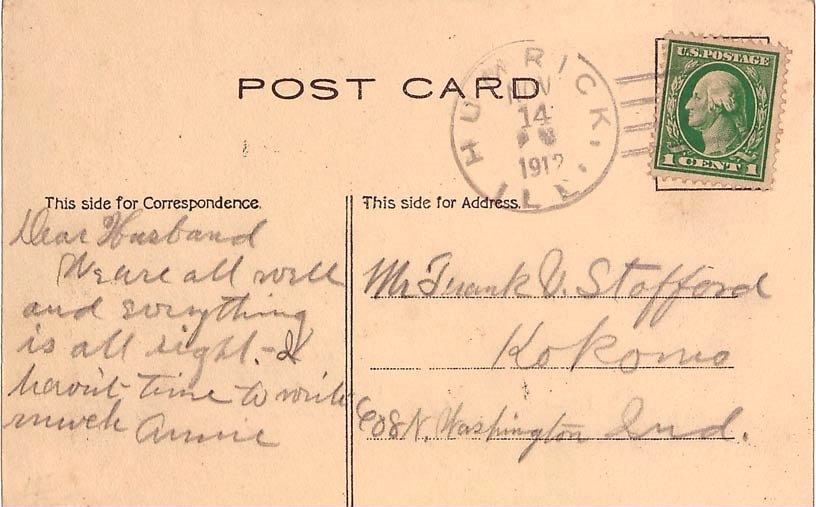 POST CARD
HUMRICK, ILL.
NOV
14
1912
U.S. POSTAGE
1 CENT 1
This side for Correspondence.
Dear Husband
We are all well
and everything
is all right - I
havn't time to write
much Annie
This side for Address.
Mr Frank V. Stafford
Kokomo
608 N. Washington Ind.